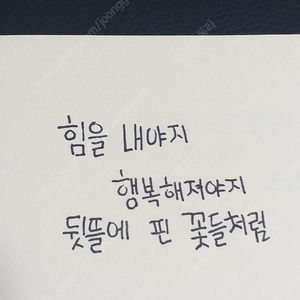 힘을 내야지
행복해져야지
뒷뜰에 핀 꽃들처럼